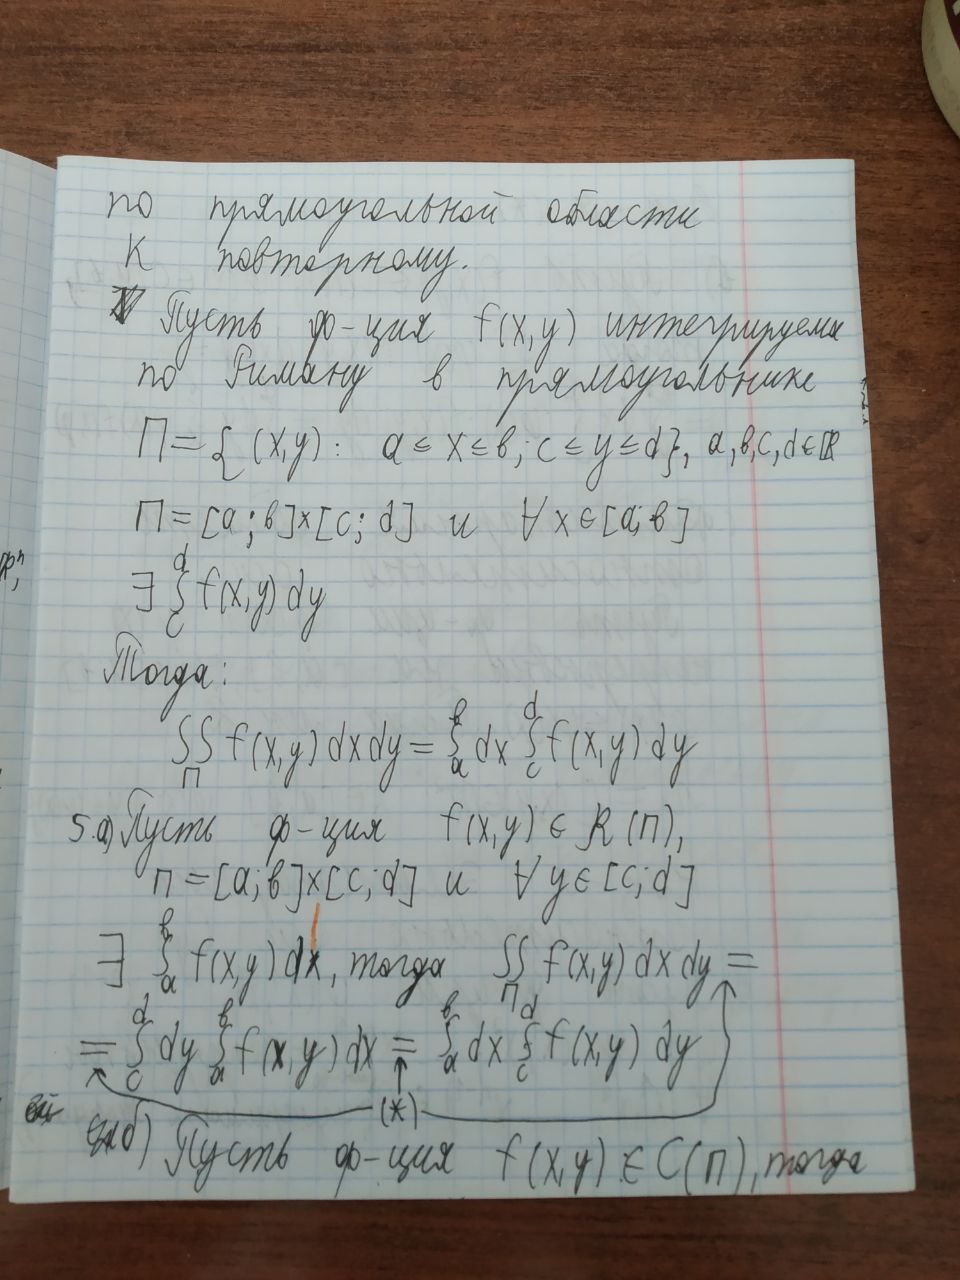 по прямоугольной области
к повторному.
Пусть ф-ция f(x,y) интегрируема
по Риману в прямоугольнике
П = { (x,y) : a ≤ x ≤ в; c ≤ y ≤ d}, a,в,c,d ∈ ℝ
П = [a; в]×[c; d] и ∀ x ∈ [a;в]
∃ ∫_c^d f(x,y) dy
Тогда:
∬_П f(x,y) dx dy = ∫_a^в dx ∫_c^d f(x,y) dy
5.а) Пусть ф-ция f(x,y) ∈ R(П),
П = [a;в]×[c;d] и ∀ y ∈ [c;d]
∃ ∫_a^в f(x,y) dx, тогда ∬_П f(x,y) dx dy =
= ∫_c^d dy ∫_a^в f(x,y) dx = ∫_a^в dx ∫_c^d f(x,y) dy
(*)
б) Пусть ф-ция f(x,y) ∈ C(П), тогда